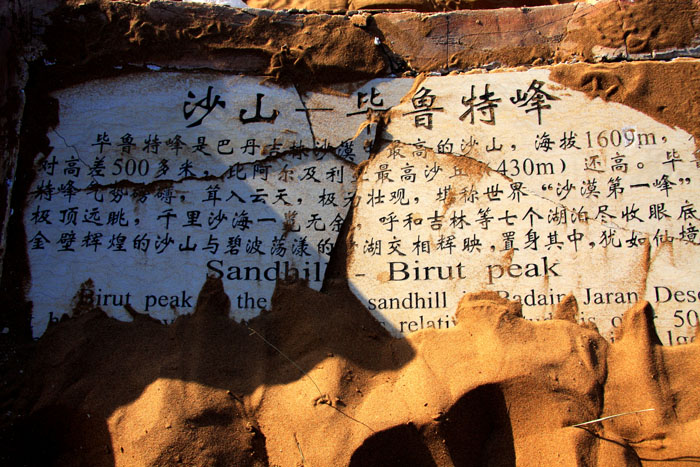 沙山—毕鲁特峰
毕鲁特峰是巴丹吉林沙漠最高的沙山，海拔1609m，
对高差500多米，比阿尔及利 最高沙丘 430m）还高。毕
特峰气势磅礴，耸入云天，极 壮观，堪称世界“沙漠第一峰”
极顶远眺，千里沙海一览无余，呼和吉林等七个湖泊尽收眼底
金壁辉煌的沙山与碧波荡漾的 湖交相辉映，置身其中，犹如仙境
Sandhill - Birut peak
Birut peak the sandhill Badain Jaran Des
relativ is 50